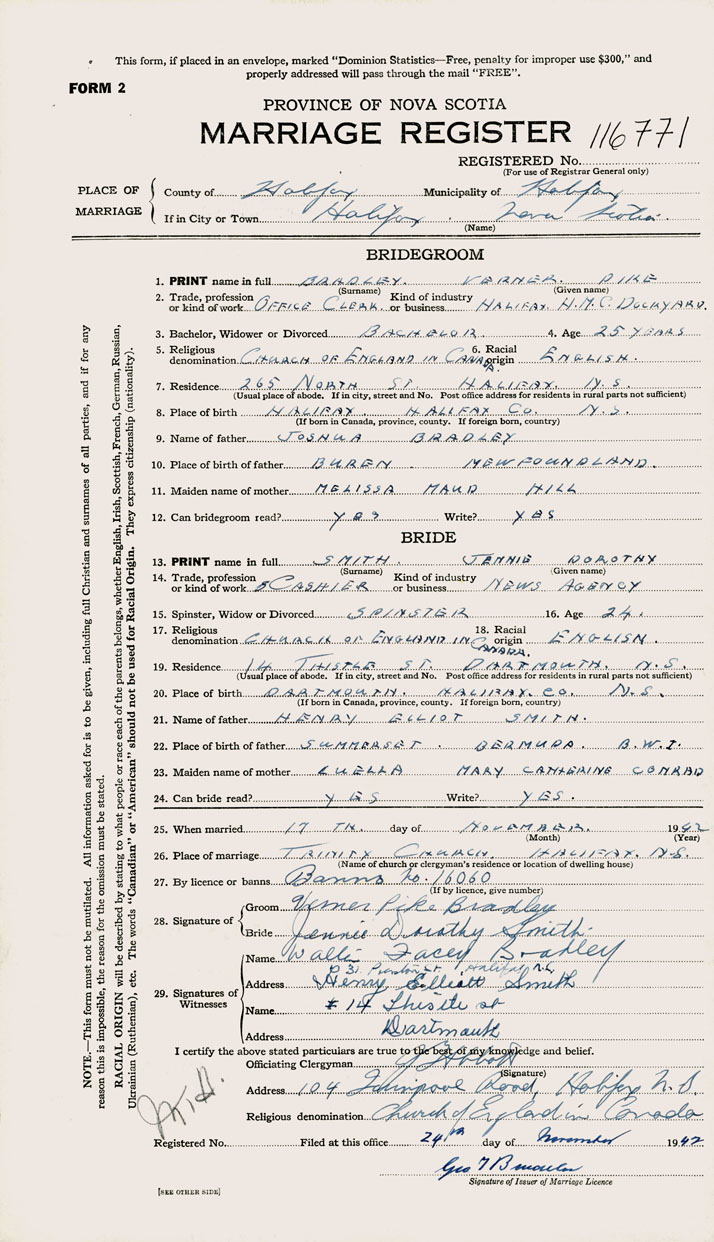 This form, if placed in an envelope, marked "Dominion Statistics—Free, penalty for improper use $300," and
properly addressed will pass through the mail "FREE".
FORM 2
PROVINCE OF NOVA SCOTIA
MARRIAGE REGISTER 116771
REGISTERED No.
(For use of Registrar General only)
PLACE OF MARRIAGE
County of Halifax Municipality of Halifax
If in City or Town Halifax Nova Scotia
(Name)
BRIDEGROOM
1. PRINT name in full BRADLEY. VERNER. PIKE
(Surname) (Given name)
2. Trade, profession or kind of work OFFICE CLERK Kind of industry or business HALIFAX. H.M.C. DOCKYARD.
3. Bachelor, Widower or Divorced BACHELOR 4. Age 25 YEARS
5. Religious denomination CHURCH OF ENGLAND IN CANADA. 6. Racial origin ENGLISH.
7. Residence 265 NORTH ST. HALIFAX. N.S.
(Usual place of abode. If in city, street and No. Post office address for residents in rural parts not sufficient)
8. Place of birth HALIFAX. HALIFAX CO. N.S.
(If born in Canada, province, county. If foreign born, country)
9. Name of father JOSHUA BRADLEY
10. Place of birth of father BUREN NEWFOUNDLAND.
11. Maiden name of mother MELISSA MAUD HILL
12. Can bridegroom read? YES Write? YES
BRIDE
13. PRINT name in full SMITH. JENNIE DOROTHY
(Surname) (Given name)
14. Trade, profession or kind of work CASHIER Kind of industry or business NEWS AGENCY
15. Spinster, Widow or Divorced SPINSTER 16. Age 24.
17. Religious denomination CHURCH OF ENGLAND IN CANADA. 18. Racial origin ENGLISH.
19. Residence 14 THISTLE ST. DARTMOUTH. N.S.
(Usual place of abode. If in city, street and No. Post office address for residents in rural parts not sufficient)
20. Place of birth DARTMOUTH. HALIFAX. CO. N.S.
(If born in Canada, province, county. If foreign born, country)
21. Name of father HENRY ELLIOT SMITH.
22. Place of birth of father SUMMERSET. BERMUDA. B.W.I.
23. Maiden name of mother LUELLA MARY CATHERINE CONRAD
24. Can bride read? YES Write? YES.
25. When married 17 TH. day of NOVEMBER. 1942
(Month) (Year)
26. Place of marriage TRINITY CHURCH. HALIFAX. N.S.
(Name of church or clergyman's residence or location of dwelling house)
27. By licence or banns Banns No. 16060
(If by licence, give number)
28. Signature of
Groom Verner Pike Bradley
Bride Jennie Dorothy Smith
29. Signatures of Witnesses
Name Facey Bradley
Address Halifax N.S.
Henry Elliott Smith
Name # 14 Thistle st
Address Dartmouth
I certify the above stated particulars are true to the best of my knowledge and belief.
Officiating Clergyman
(Signature)
Address 104 Road, Halifax N.S.
Religious denomination Church of England in Canada
Registered No. Filed at this office 24th day of November 1942
Geo
Signature of Issuer of Marriage Licence
[SEE OTHER SIDE]
NOTE.—This form must not be mutilated. All information asked for is to be given, including full Christian and surnames of all parties, and if for any
reason this is impossible, the reason for the omission must be stated.
RACIAL ORIGIN will be described by stating to what people or race each of the parents belongs, whether English, Irish, Scottish, French, German, Russian,
Ukrainian (Ruthenian), etc. The words "Canadian" or "American" should not be used for Racial Origin. They express citizenship (nationality).